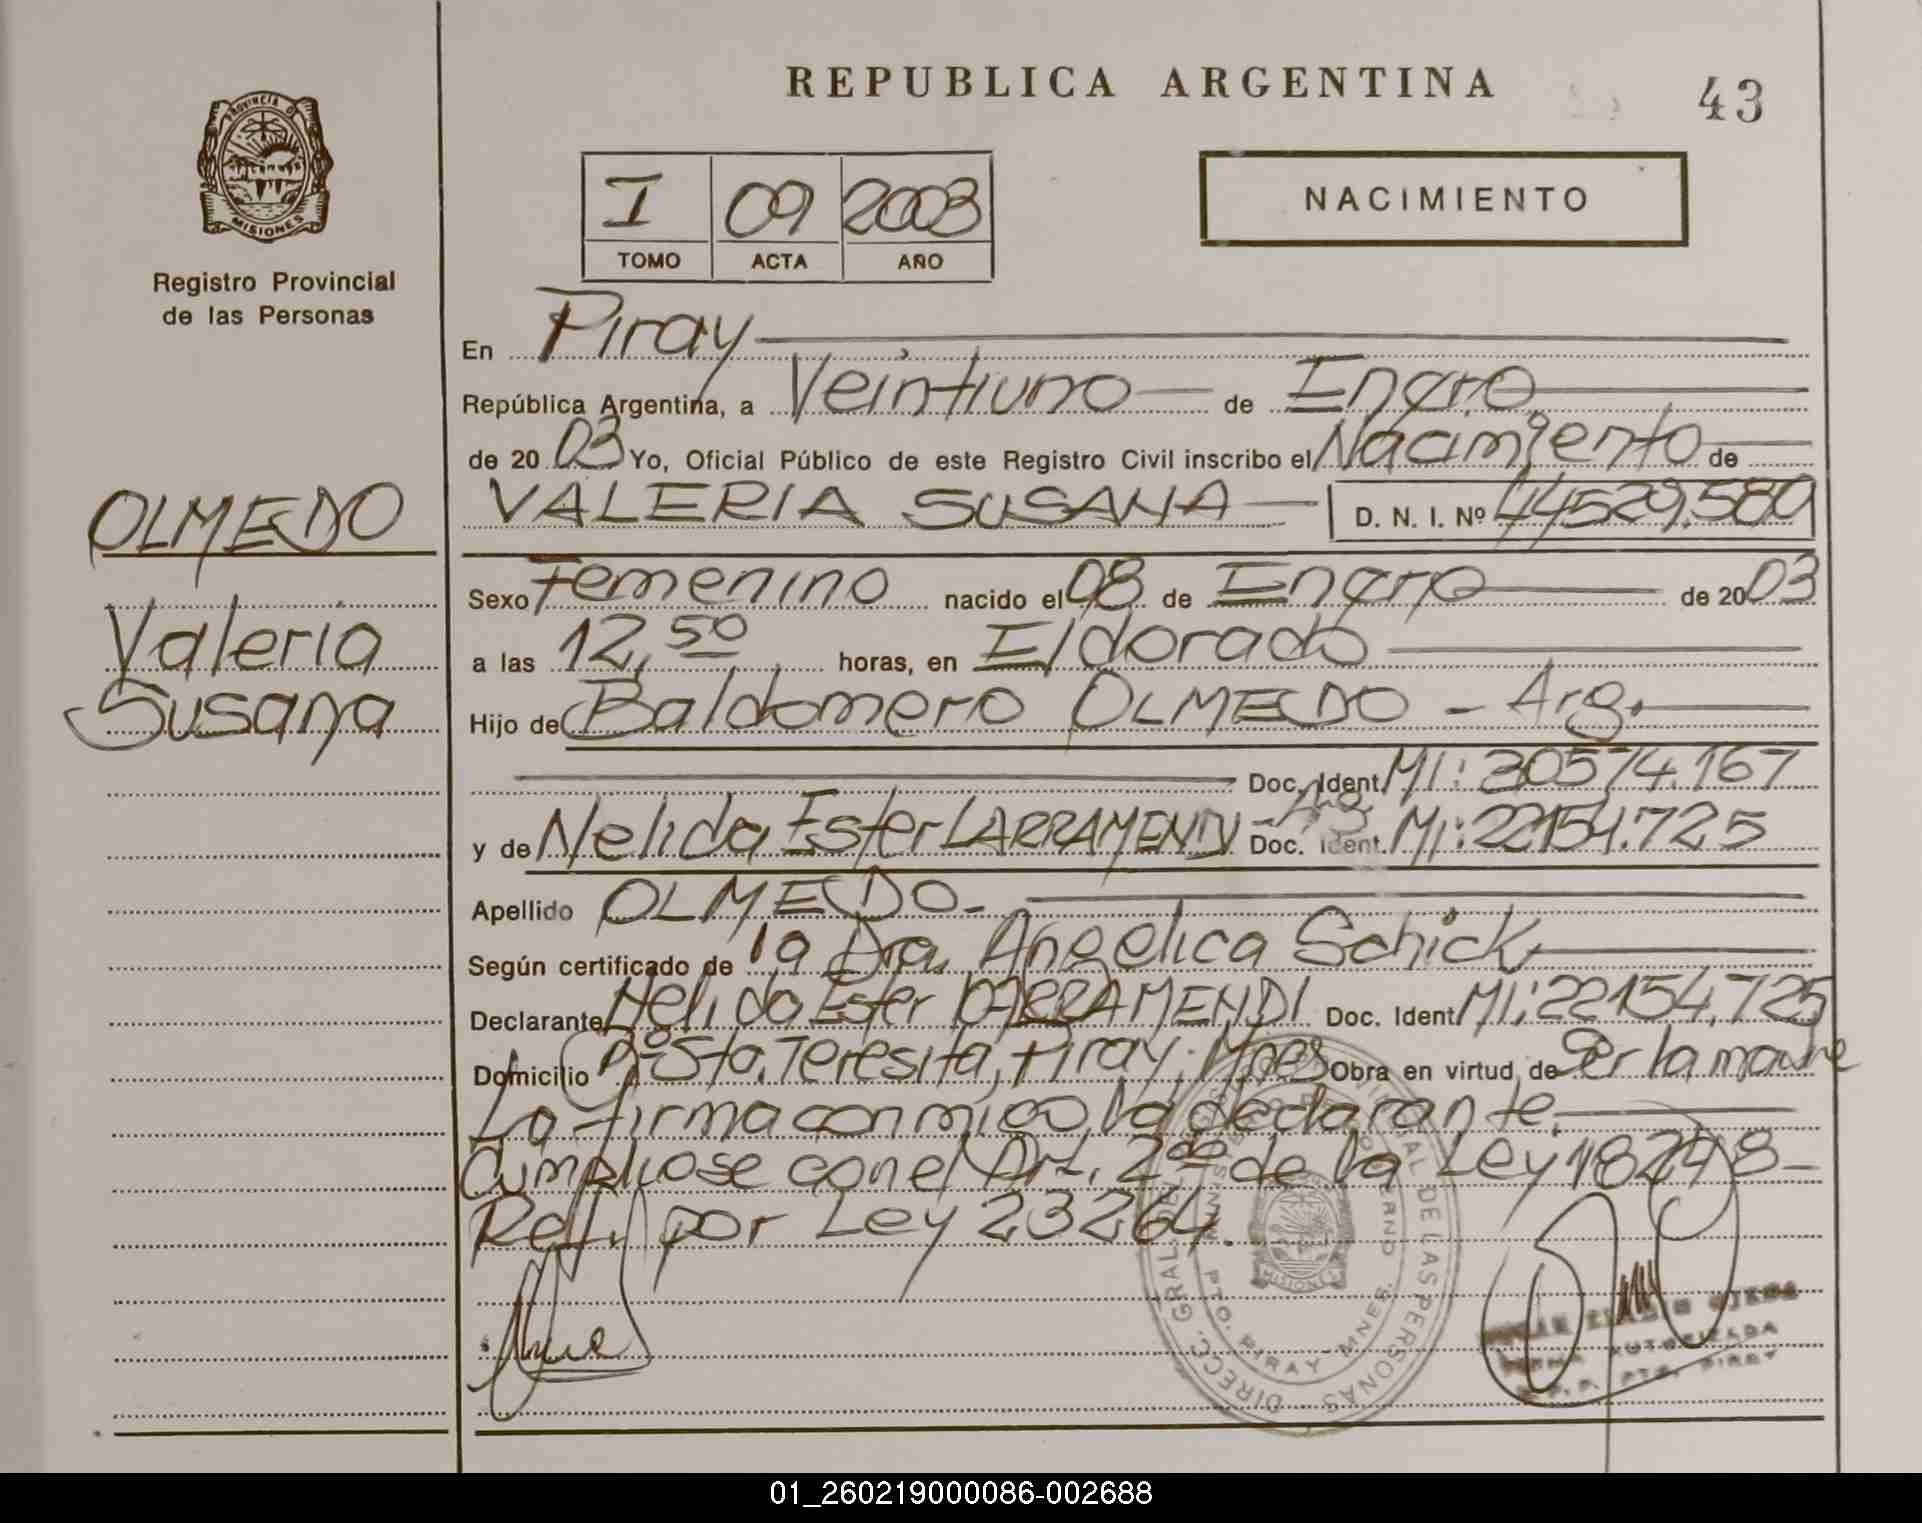 REPUBLICA ARGENTINA
43
PROVINCIA DE
MISIONES
Registro Provincial
de las Personas
I 09 2003
TOMO ACTA AÑO
NACIMIENTO
En Piray
República Argentina, a Veintiuno de Enero
de 20 03 Yo, Oficial Público de este Registro Civil inscribo el Nacimiento de
OLMEDO
VALERIA SUSANA D. N. I. Nº 44529.580
Valeria
Susana
Sexo Femenino nacido el 08 de Enero de 20 03
a las 12,50 horas, en Eldorado
Hijo de Baldomero OLMEDO - Arg.
Doc. Ident. MI: 30574.167
y de Nelida Ester LARRAMENDI - Arg Doc. Ident. MI: 22154.725
Apellido OLMEDO.-
Según certificado de la Dra. Angelica Schick
Declarante Nelida Ester LARRAMENDI Doc. Ident. MI: 22154.725
Domicilio Bº Sta. Teresita, Piray, Mnes Obra en virtud de Ser la madre
La firma conmigo la declarante.
Cumpliose con el Art. 2do de la Ley 18248-
Ref. por Ley 23264.
DIRECC. GRAL. DE LAS PERSONAS
PTO. PIRAY - MNES.
MISIONES
OJEDA
FIRMA AUTORIZADA
PTO. PIRAY
01_260219000086-002688